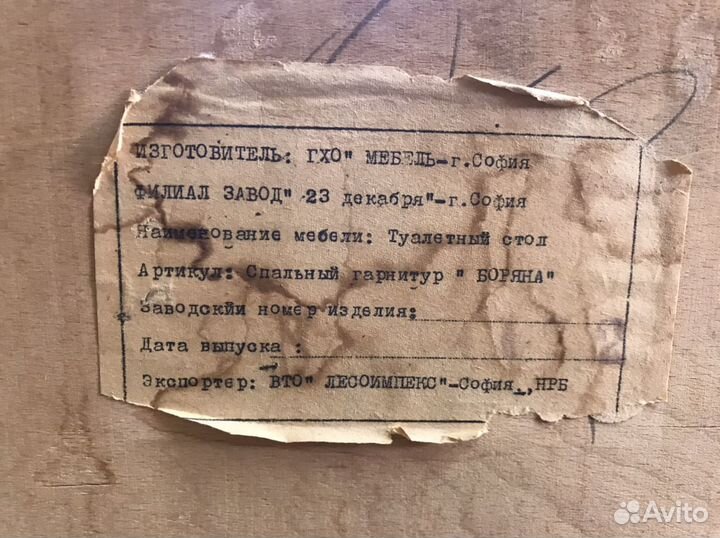 ИЗГОТОВИТЕЛЬ: ГХО" МЕБЕЛЬ-г.София
ФИЛИАЛ ЗАВОД" 23 декабря"-г.София
Наименование мебели: Туалетный стол
Артикул: Спальный гарнитур " БОРЯНА"
Заводский номер изделия:
Дата выпуска :
Экспортер: ВТО" ЛЕСОИМПЕКС"-София.,НРБ
Avito